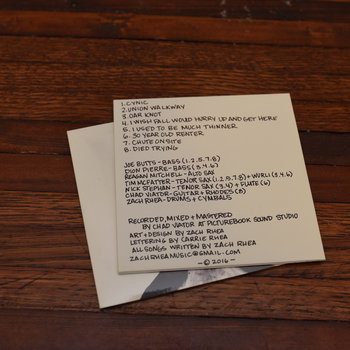 1. CYNIC
2. UNION WALKWAY
3. OAR KNOT
4. I WISH FALL WOULD HURRY UP AND GET HERE
5. I USED TO BE MUCH THINNER
6. 30 YEAR OLD RENTER
7. CHUTE ON SITE
8. DIED TRYING
JOE BUTTS - BASS (1.2.5.7.8)
DION PIERRE - BASS (3.4.6)
REAGAN MITCHELL - ALTO SAX
TIM MCFATTER - TENOR SAX (1.2.5.7.8) + WURLI (3.4)
NICK STEPHAN - TENOR SAX (3.4) + FLUTE (6)
CHAD VIATOR - GUITAR + RHODES (8)
ZACH RHEA - DRUMS + CYMBALS
RECORDED, MIXED + MASTERED
BY CHAD VIATOR AT PICTUREBOOK SOUND STUDIO
ART + DESIGN BY ZACH RHEA
LETTERING BY CARRIE RHEA
ALL SONGS WRITTEN BY ZACH RHEA
ZACHRHEAMUSIC@GMAIL.COM
- © 2016 -